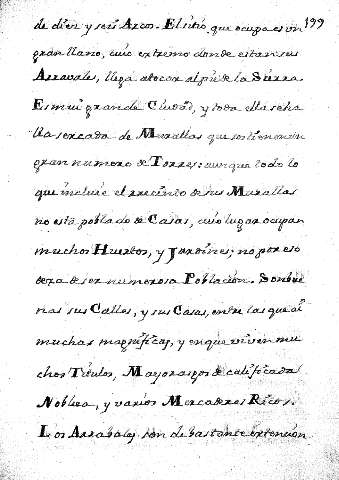 199
de diez y seis Arcos. El sitio que ocupa es un
gran llano, cuio extremo donde estan sus
Arravales, llega a tocar al pie de la Sierra.
Es mui grande Ciudad, y toda ella se ha
lla sercada de Murallas que sostienen un
gran numero de Torres: aunque todo lo
que incluie el rrecinto de sus Murallas
no està poblado de Casas, cuio lugar ocupan
muchos Huertos, y Jardines; no por eso
dexa de ser numerosa Poblacion. Son bue
nas sus Calles, y sus Casas, entre las que ai
muchas magnificas, y en que viven mu
chos Titulos, Mayorasgos de calificada
Nobleza, y varios Mercaderes Ricos.
Los Arrabales son de bastante extencion